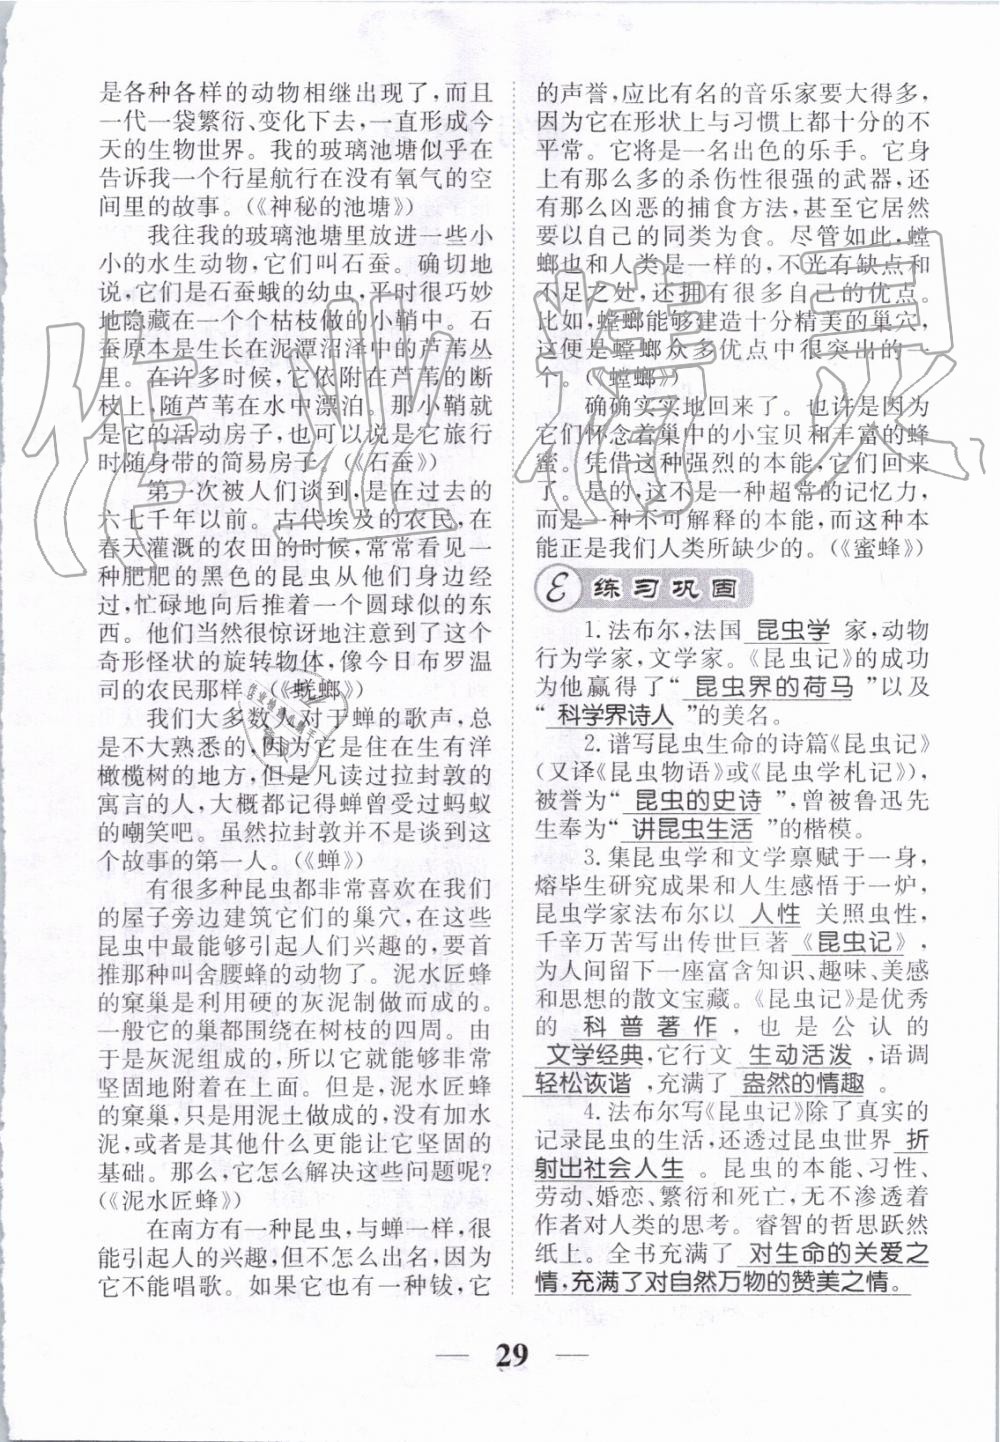 是各种各样的动物相继出现了,而且
一代一袋繁衍、变化下去,一直形成今
天的生物世界。我的玻璃池塘似乎在
告诉我一个行星航行在没有氧气的空
间里的故事。(《神秘的池塘》)
我往我的玻璃池塘里放进一些小
小的水生动物,它们叫石蚕。确切地
说,它们是石蚕蛾的幼虫,平时很巧妙
地隐藏在一个个枯枝做的小鞘中。石
蚕原本是生长在泥潭沼泽中的芦苇丛
里。在许多时候,它依附在芦苇的断
枝上,随芦苇在水中漂泊。那小鞘就
是它的活动房子,也可以说是它旅行
时随身带的简易房子。(《石蚕》)
第一次被人们谈到,是在过去的
六七千年以前。古代埃及的农民,在
春天灌溉的农田的时候,常常看见一
种肥肥的黑色的昆虫从他们身边经
过,忙碌地向后推着一个圆球似的东
西。他们当然很惊讶地注意到了这个
奇形怪状的旋转物体,像今日布罗温
司的农民那样。(《蜣螂》)
我们大多数人对于蝉的歌声,总
是不大熟悉的,因为它是住在生有洋
橄榄树的地方,但是凡读过拉封敦的
寓言的人,大概都记得蝉曾受过蚂蚁
的嘲笑吧。虽然拉封敦并不是谈到这
个故事的第一人。(《蝉》)
有很多种昆虫都非常喜欢在我们
的屋子旁边建筑它们的巢穴,在这些
昆虫中最能够引起人们兴趣的,要首
推那种叫舍腰蜂的动物了。泥水匠蜂
的窠巢是利用硬的灰泥制做而成的。
一般它的巢都围绕在树枝的四周。由
于是灰泥组成的,所以它就能够非常
坚固地附着在上面。但是,泥水匠蜂
的窠巢,只是用泥土做成的,没有加水
泥,或者是其他什么更能让它坚固的
基础。那么,它怎么解决这些问题呢?
(《泥水匠蜂》)
在南方有一种昆虫,与蝉一样,很
能引起人的兴趣,但不怎么出名,因为
它不能唱歌。如果它也有一种钹,它
的声誉,应比有名的音乐家要大得多,
因为它在形状上与习惯上都十分的不
平常。它将是一名出色的乐手。它身上
有那么多的杀伤性很强的武器,还
有那么凶恶的捕食方法,甚至它居然
要以自己的同类为食。尽管如此,螳
螂也和人类是一样的,不光有缺点和
不足之处,还拥有很多自己的优点。
比如,螳螂能够建造十分精美的巢穴,
这便是螳螂众多优点中很突出的一
个。(《螳螂》)
确确实实地回来了。也许是因为
它们怀念着巢中的小宝贝和丰富的蜂
蜜。凭借这种强烈的本能,它们回来
了。是的,这不是一种超常的记忆力,
而是一种不可解释的本能,而这种本
能正是我们人类所缺少的。(《蜜蜂》)
E 练习巩固
1.法布尔,法国 昆虫学 家,动物
行为学家,文学家。《昆虫记》的成功
为他赢得了“ 昆虫界的荷马 ”以及
“ 科学界诗人 ”的美名。
2.谱写昆虫生命的诗篇《昆虫记》
(又译《昆虫物语》或《昆虫学札记》),
被誉为“ 昆虫的史诗 ”,曾被鲁迅先
生奉为“ 讲昆虫生活 ”的楷模。
3.集昆虫学和文学禀赋于一身,
熔毕生研究成果和人生感悟于一炉,
昆虫学家法布尔以 人性 关照虫性,
千辛万苦写出传世巨著《昆虫记》,
为人间留下一座富含知识、趣味、美感
和思想的散文宝藏。《昆虫记》是优秀
的 科普著作 ,也是公认的
文学经典,它行文 生动活泼 ,语调
轻松诙谐 ,充满了 盎然的情趣 。
4.法布尔写《昆虫记》除了真实的
记录昆虫的生活,还透过昆虫世界 折
射出社会人生 。昆虫的本能、习性、
劳动、婚恋、繁衍和死亡,无不渗透着
作者对人类的思考。睿智的哲思跃然
纸上。全书充满了 对生命的关爱之
情,充满了对自然万物的赞美之情。
— 29 —
作业精灵